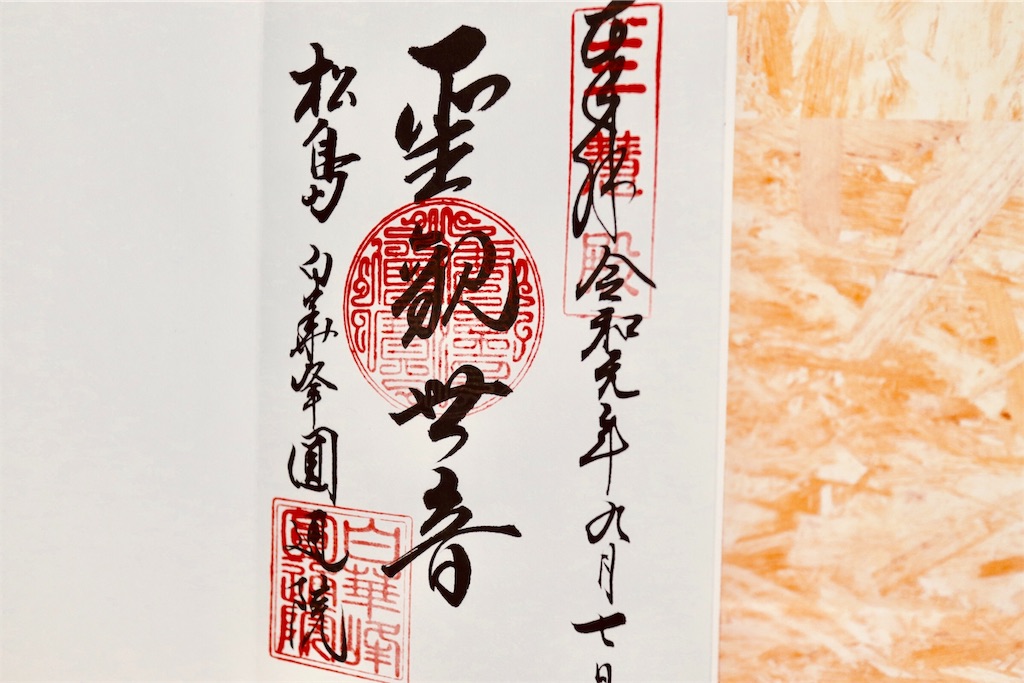 奉拝 令和元年九月七日
三慧殿
聖観世音
松島 白華峰圓通院
白華峰
圓通院